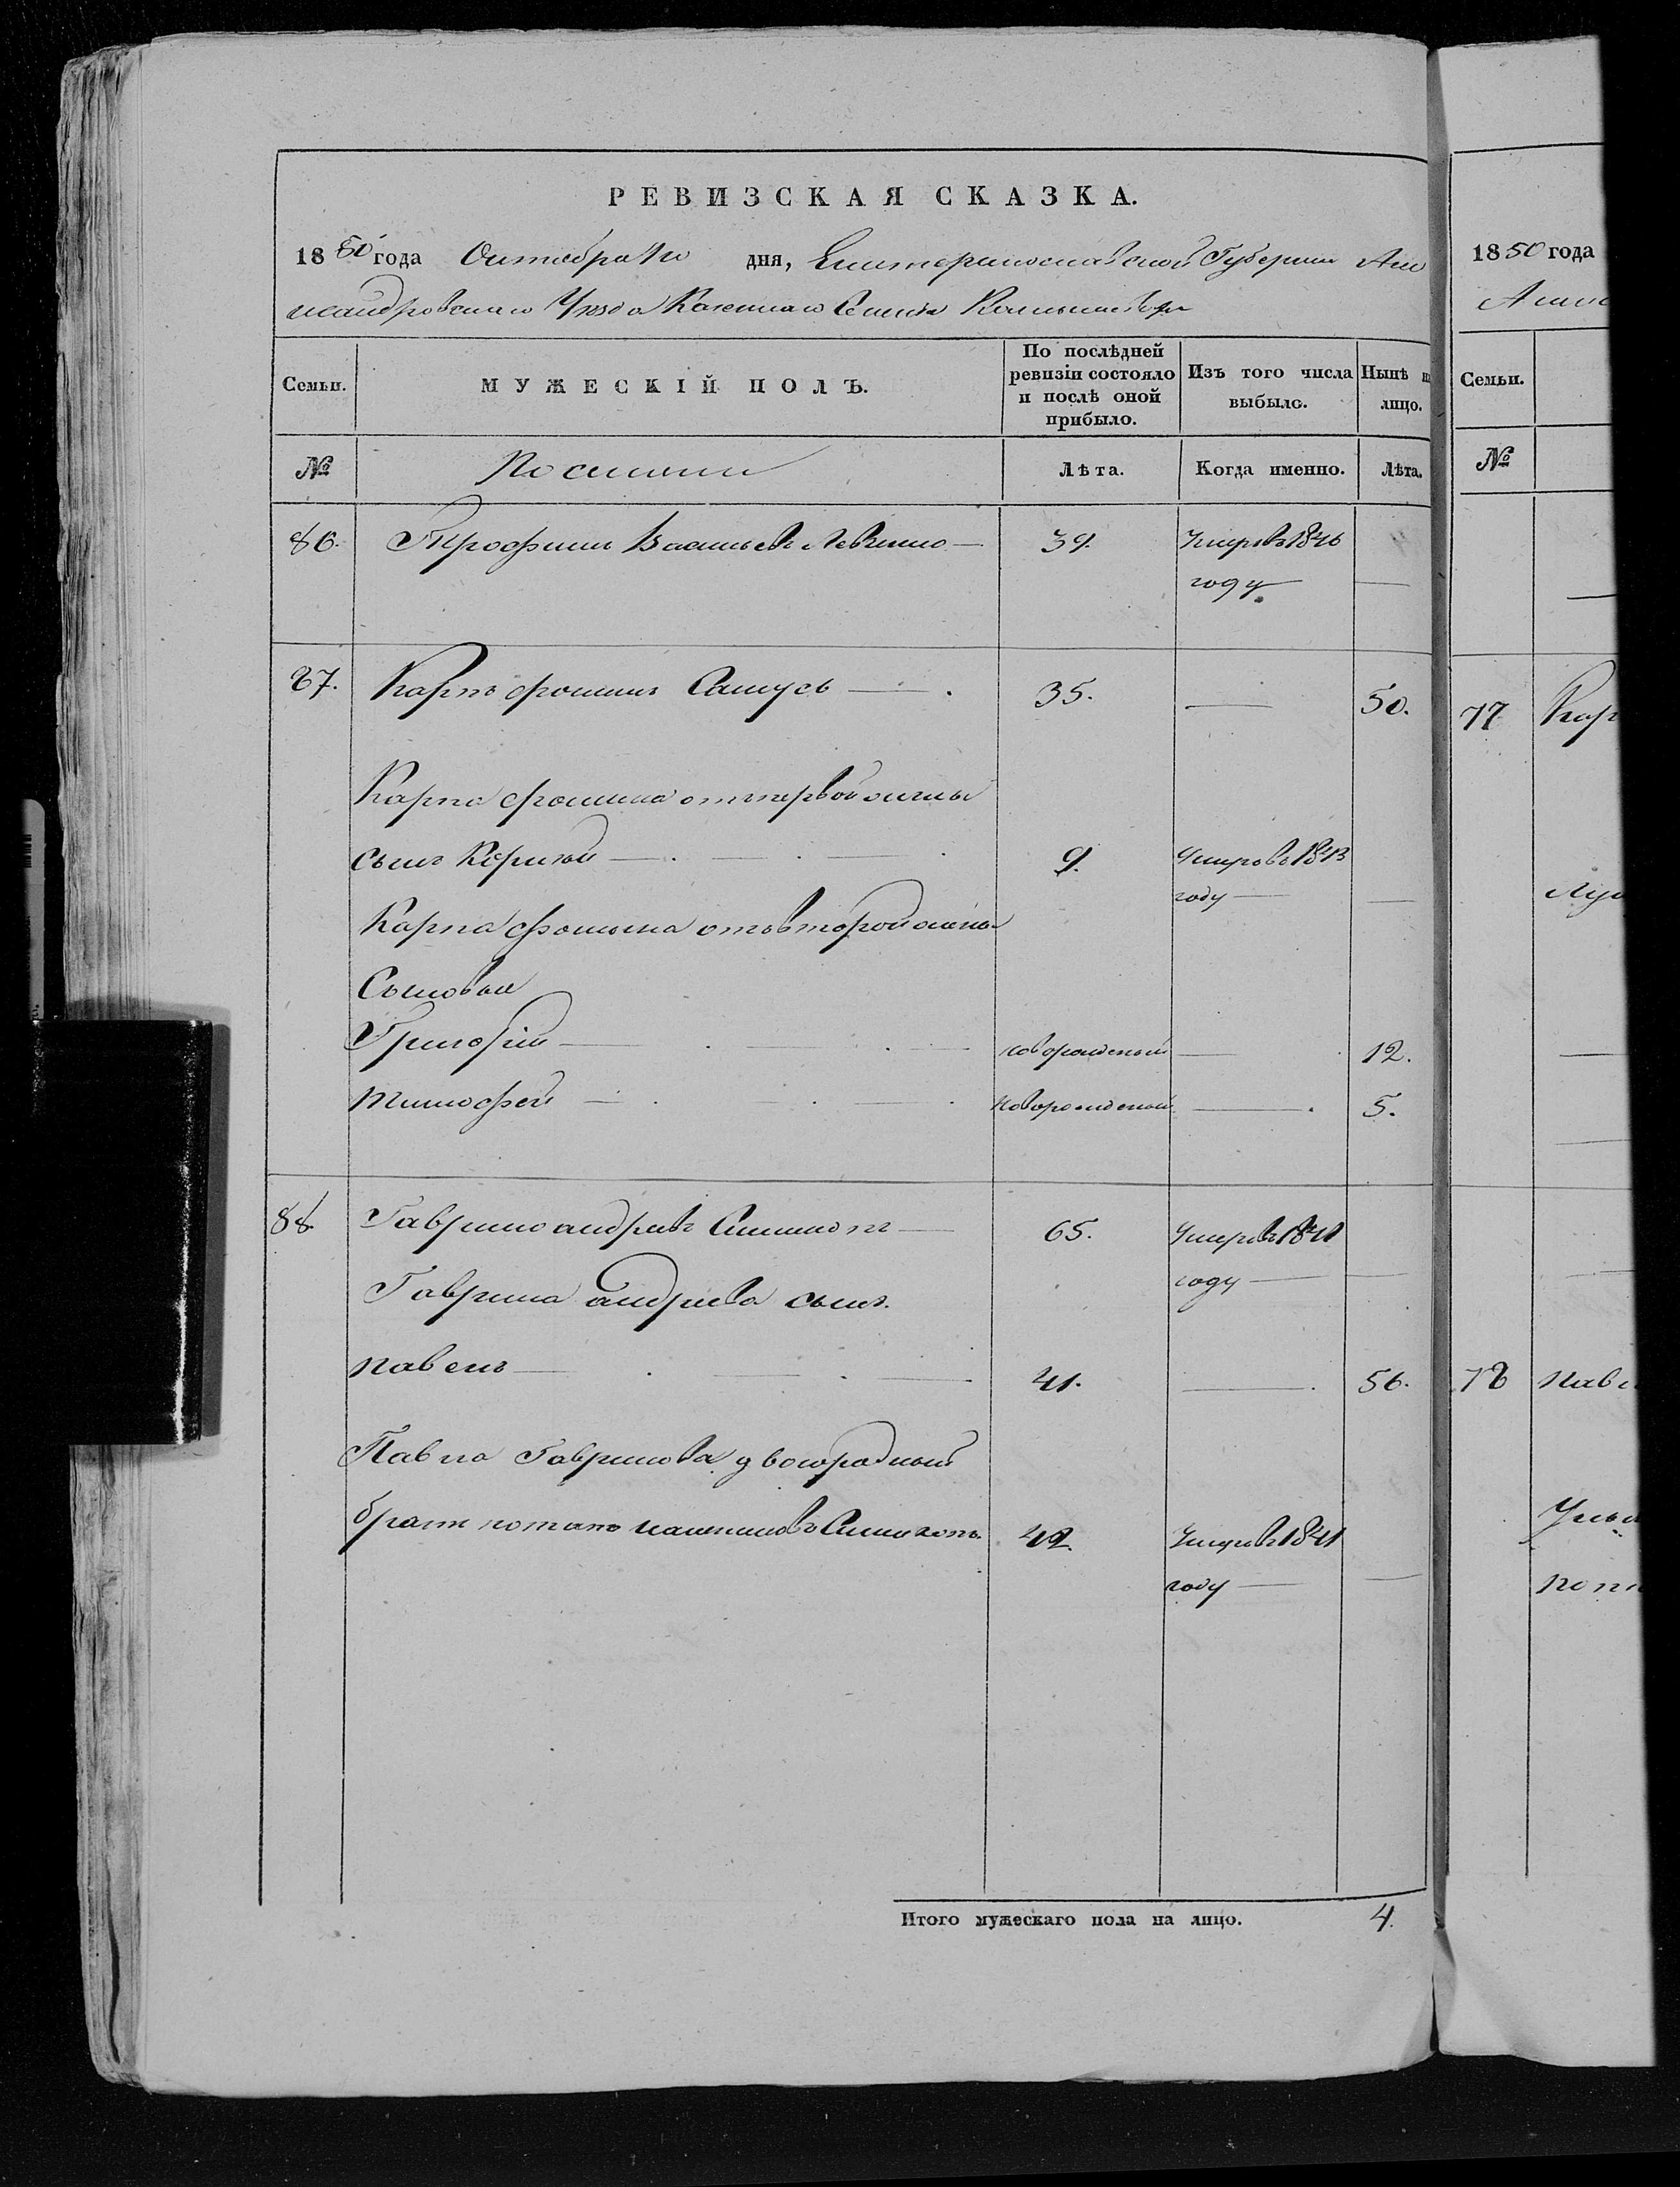 РЕВИЗСКАЯ СКАЗКА.
1850 года Октября дня, Екатеринославской Губернии Але
ксандровскаго Уѣзда Казеннаго Селенія
Семьи.
МУЖЕСКІЙ ПОЛЪ.
По послѣдней ревизіи состояло и послѣ оной прибыло.
Изъ того числа выбыло.
Нынѣ на лицо.
№
Лѣта.
Когда именно.
Лѣта.
86. Трофимъ Васильевъ 39. Умеръ въ 1846
году
87. Карпъ Фоминъ Самусь 35. 50.
Карпа Фомина отъ первой жены
сынъ 9. Умеръ въ 1843
году
Карпа Фомина отъ второй жены
Сыновья
Григорій новорожденый 12.
Тимофей новорожденый 5.
88. Гаврило андреевъ 65. Умеръ въ 1841
году
Гаврила андреева сынъ
павелъ 41. 56.
Павла Гаврилова двоюродный
братъ потапъ 42. Умеръ въ 1841
году
Итого мужескаго пола на лицо. 4.
1850 года
Семьи.
№
77 Кар
78 Паве